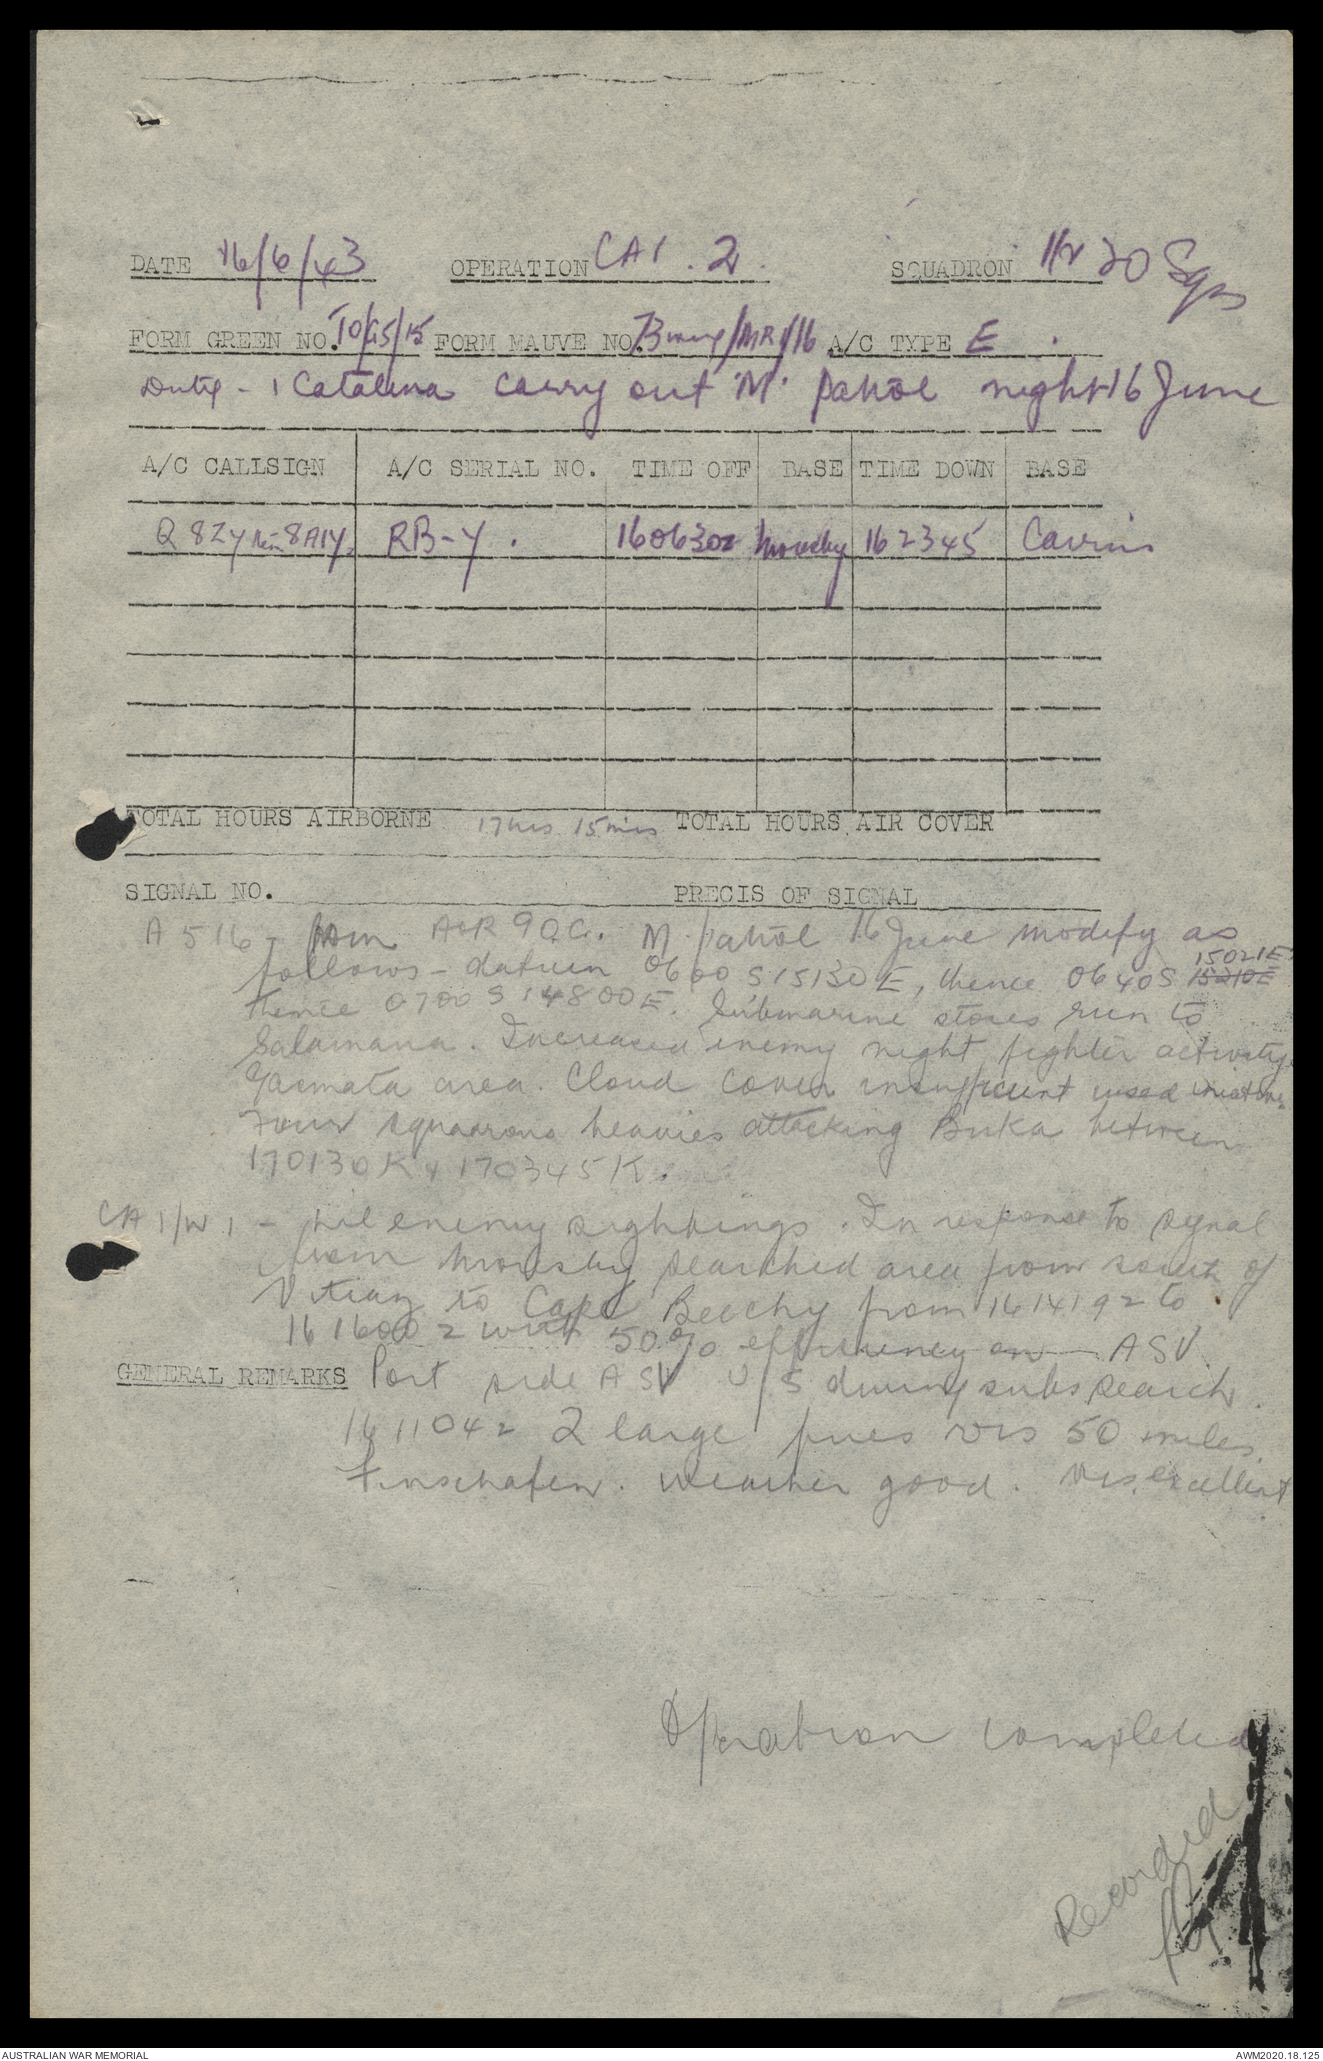 DATE 16/6/43 OPERATION CA1.2. SQUADRON 11 & 20 Sqns
FORM GREEN NO. TO/G5/15 FORM MAUVE NO. /MR1/16 A/C TYPE E.
Duty - 1 Catalina carry out 'M' patrol night 16 June
A/C CALLSIGN A/C SERIAL NO. TIME OFF BASE TIME DOWN BASE
Q 8ZY 8A1Y. RB-Y. 160630z Moresby 162345 Cairns
TOTAL HOURS AIRBORNE 17 hrs 15 mins TOTAL HOURS AIR COVER
SIGNAL NO. PRECIS OF SIGNAL
A 516 - from AOR 9OG. M patrol 16 June modify as
15021E
follows - datum 0600 S 15130 E, thence 0640S 15210E
thence 0700 S 14800E. Submarine stores run to
Salamaua. Increased enemy night fighter activity
Gasmata area. Cloud cover insufficient used
Four squadrons heavies attacking Buka between
170130K & 170345K.
CA 1/W 1 - Nil enemy sightings. In response to signal
from Moresby searched area from south of
Vitiaz to Cape Beechy from 161419z to
161600z with 50% efficiency on ASV.
GENERAL REMARKS Port side ASV U/S during subs search.
161104z 2 large fires vis 50 miles
Finschafen. Weather good. Vis. excellent
Operation completed
Recorded
AUSTRALIAN WAR MEMORIAL AWM2020.18.125